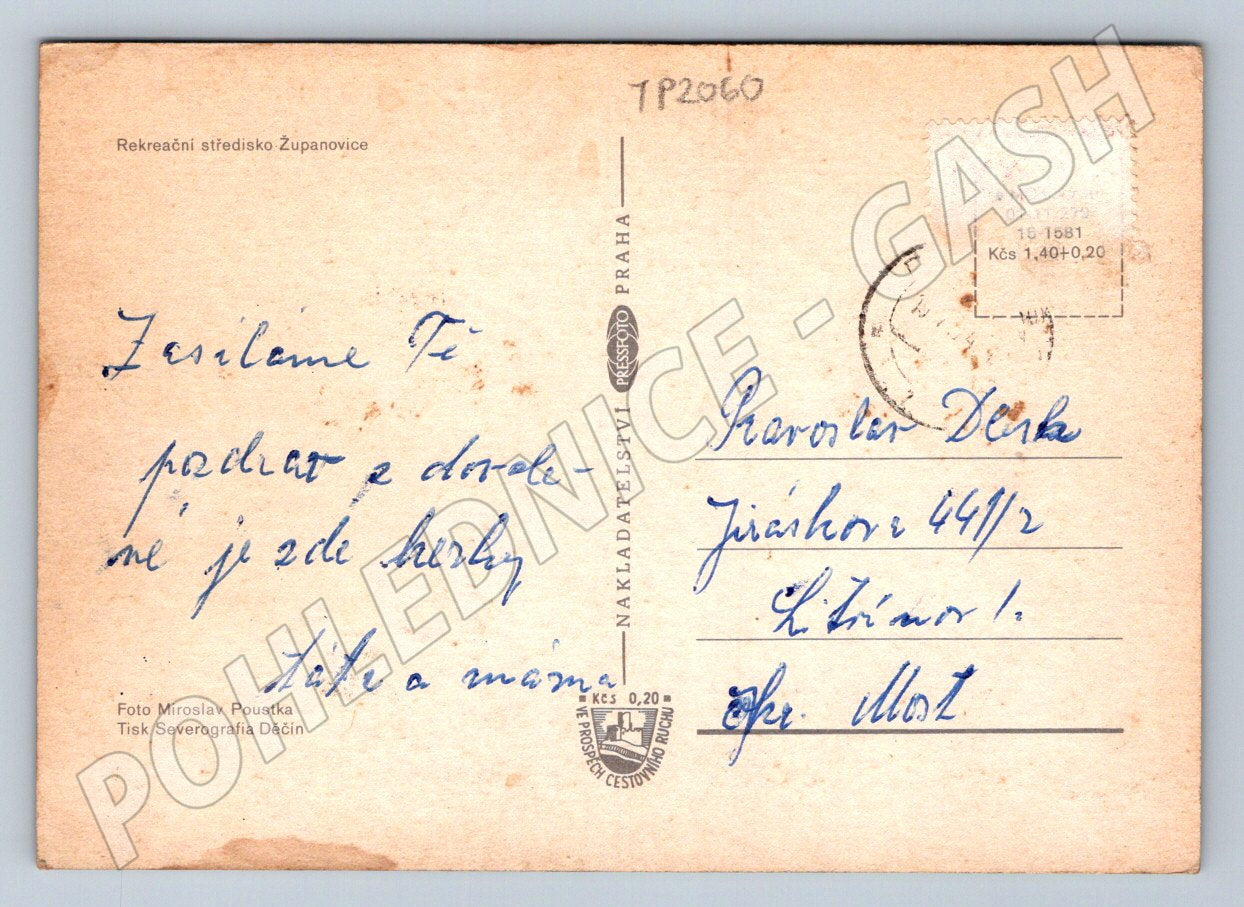 TP2060
Rekreační středisko Županovice
16 1581
Kčs 1,40+0,20
Zasíláme Ti
pozdrav z dovole-
né je zde hezky
táta a máma
Foto Miroslav Poustka
Tisk Severografia Děčín
NAKLADATELSTVÍ PRESSFOTO PRAHA
Kčs 0,20
VE PROSPĚCH CESTOVNÍHO RUCHU
Pravoslav
Jiráskova 441/2
Litvínov 1.
okr. Most
POHLEDNICE - GASH